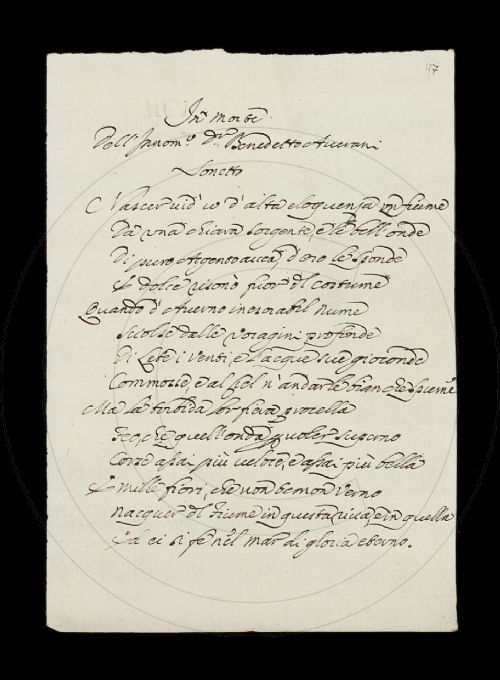 97
In Morte
Dell'Innom.º D.r Benedetto Averani
Sonetto
Nascer vid'io d'alta eloquenza un fiume
Da una chiara sorgente, e le bell'onde
Di puro Argento avea, d'oro le sponde
E dolce fior del costume
Quando d'Averno inesorabil Nume
Sciolse dalle voragini profonde
Di Lete i venti, e l'acque sue gioconde
Commosse, e al Ciel n'andar le bianche spume
Ma la torbida fiera procella
Feo, che quell'onda voler superno
Corse assai più veloce, e assai più bella
E mille fiori, che non temon verno
Nacquer del fiume in questa riva, e in quella
Ed ei si fe' nel mar di gloria eterno.